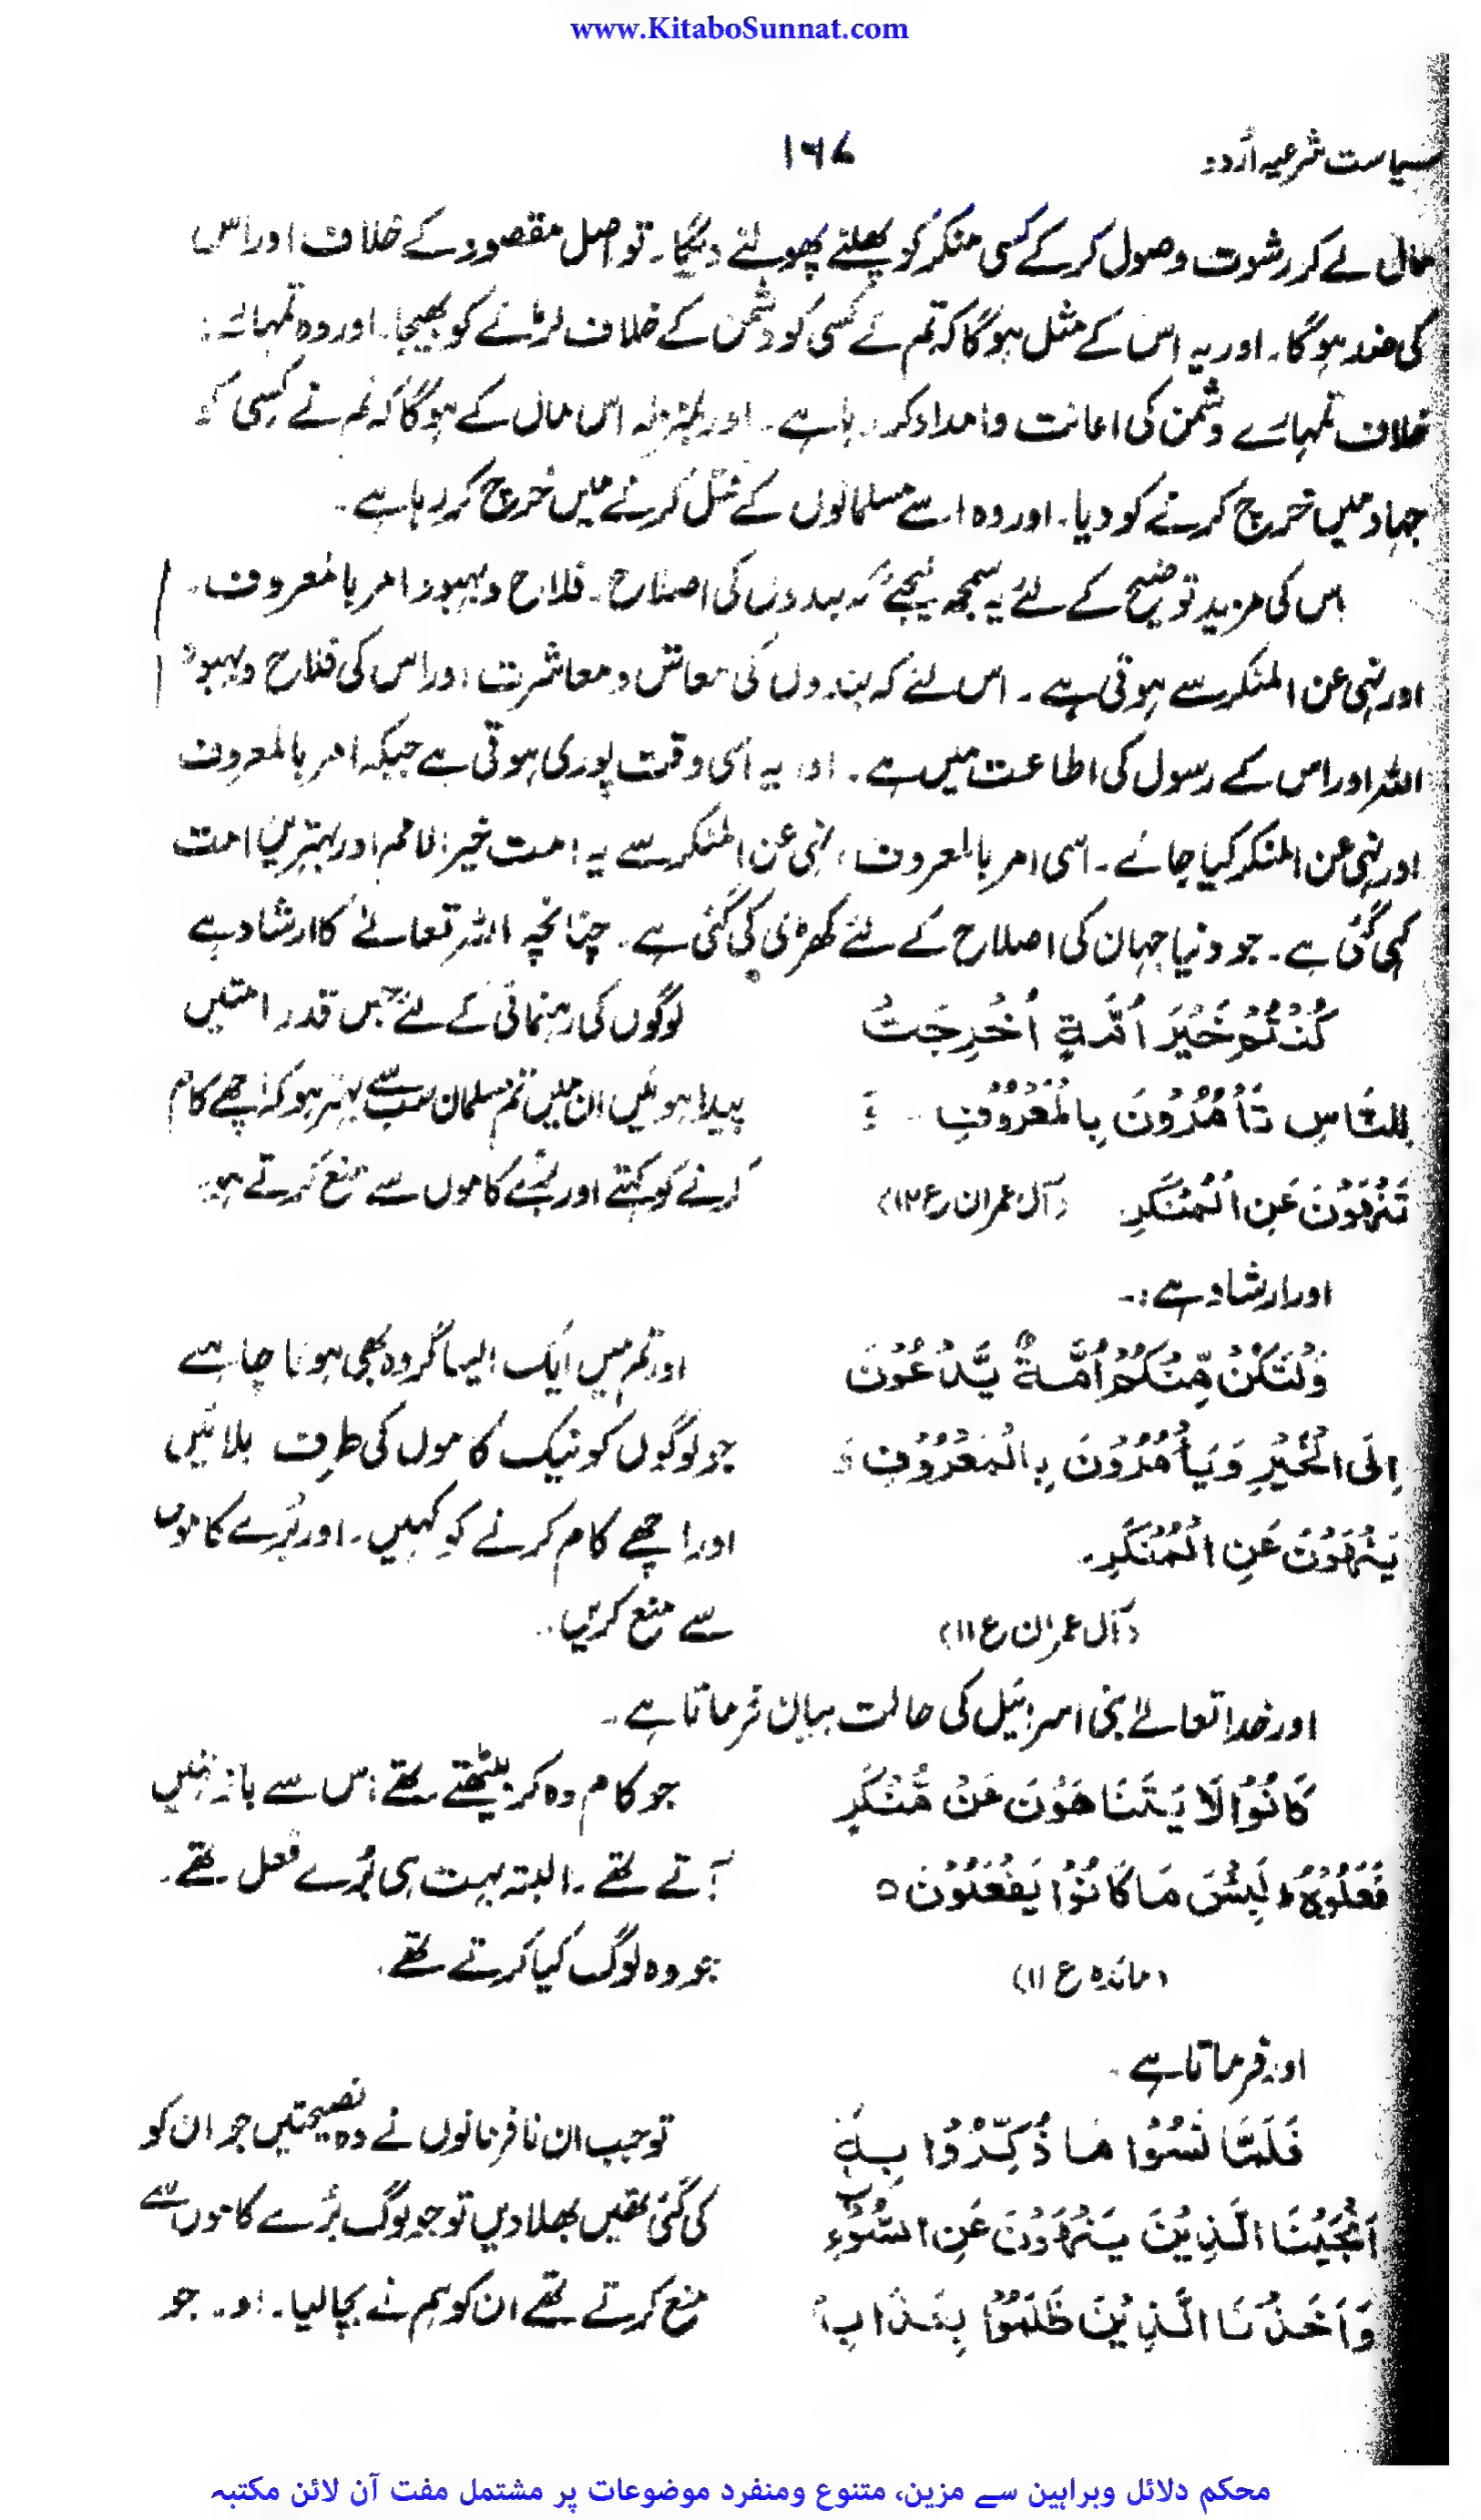 www.KitaboSunnat.com
سیاست شرعیہ اُردو
۱۶۷
مال لے کر رشوت وصول کر کے کسی منکر کو پھلنے پھولنے دیگا۔ تو اصل مقصود کے خلاف اور اس
کی ضد ہوگا۔ اور یہ اس کے مثل ہوگا کہ تم نے کسی کو دشمن کے خلاف لڑنے کو بھیجا۔ اور وہ تمہارے
خلاف تمہارے دشمن کی اعانت و امداد کر رہا ہے۔ اور بمنزلہ اس مال کے ہوگا کہ تم نے کسی کو
جہاد میں خرچ کرنے کو دیا۔ اور وہ اسے مسلمانوں کے قتل کرنے میں خرچ کر رہا ہے۔
اس کی مزید توضیح کے لئے یہ سمجھ لیجئے کہ بندوں کی اصلاح۔ فلاح و بہبود امر بالمعروف۔
اور نہی عن المنکر سے ہوتی ہے۔ اس لئے کہ بندوں کی معاش و معاشرت اور اس کی فلاح و بہبود
اللہ اور اس کے رسول کی اطاعت میں ہے۔ اور یہ اسی وقت پوری ہوتی ہے جبکہ امر بالمعروف
اور نہی عن المنکر کیا جائے۔ اسی امر بالمعروف، نہی عن المنکر سے یہ امت خیر الامم اور بہترین امت
کہی گئی ہے۔ جو دنیا جہان کی اصلاح کے لئے کھڑی کی گئی ہے۔ چنانچہ اللہ تعالےٰ کا ارشاد ہے
كُنْتُمْ خَيْرَ اُمَّةٍ اُخْرِجَتْ
لِلنَّاسِ تَاْمُرُوْنَ بِالْمَعْرُوْفِ وَ
تَنْهَوْنَ عَنِ الْمُنْكَرِ (آل عمران ع ۱۲)
لوگوں کی رہنمائی کے لئے جس قدر امتیں
پیدا ہوئیں ان میں تم مسلمان سب سے بہتر ہو کہ اچھے کام
کرنے کو کہتے اور بُرے کاموں سے منع کرتے ہو۔
اور ارشاد ہے:۔
وَلْتَكُنْ مِّنْكُمْ اُمَّةٌ يَّدْعُوْنَ
اِلَى الْخَيْرِ وَيَاْمُرُوْنَ بِالْمَعْرُوْفِ وَ
يَنْهَوْنَ عَنِ الْمُنْكَرِ۔
(آل عمران ع ۱۱)
اور تم میں ایک ایسا گروہ بھی ہونا چاہے
جو لوگوں کو نیک کاموں کی طرف بلائیں
اور اچھے کام کرنے کو کہیں۔ اور بُرے کاموں
سے منع کریں۔
اور خدا تعالےٰ بنی اسرائیل کی حالت بیان فرماتا ہے۔
كَانُوْا لَا يَتَنَاهَوْنَ عَنْ مُّنْكَرٍ
فَعَلُوْهُ ؕ لَبِئْسَ مَا كَانُوْا يَفْعَلُوْنَ ○
(مائدہ ع ۱۱)
جو کام وہ کر بیٹھتے تھے اس سے باز نہیں
آتے تھے۔ البتہ بہت ہی بُرے فعل تھے۔
جو وہ لوگ کیا کرتے تھے۔
اور فرماتا ہے۔
فَلَمَّا نَسُوْا مَا ذُكِّرُوْا بِهٖ
اَنْجَيْنَا الَّذِيْنَ يَنْهَوْنَ عَنِ السُّوْٓءِ
وَاَخَذْنَا الَّذِيْنَ ظَلَمُوْا بِعَذَابٍ
تو جب ان نافرمانوں نے وہ نصیحتیں جو ان کو
کی گئی تھیں بھلا دیں تو جو لوگ بُرے کاموں سے
منع کرتے تھے ان کو ہم نے بچا لیا۔ اور جو
محکم دلائل وبراہین سے مزین، متنوع ومنفرد موضوعات پر مشتمل مفت آن لائن مکتبہ